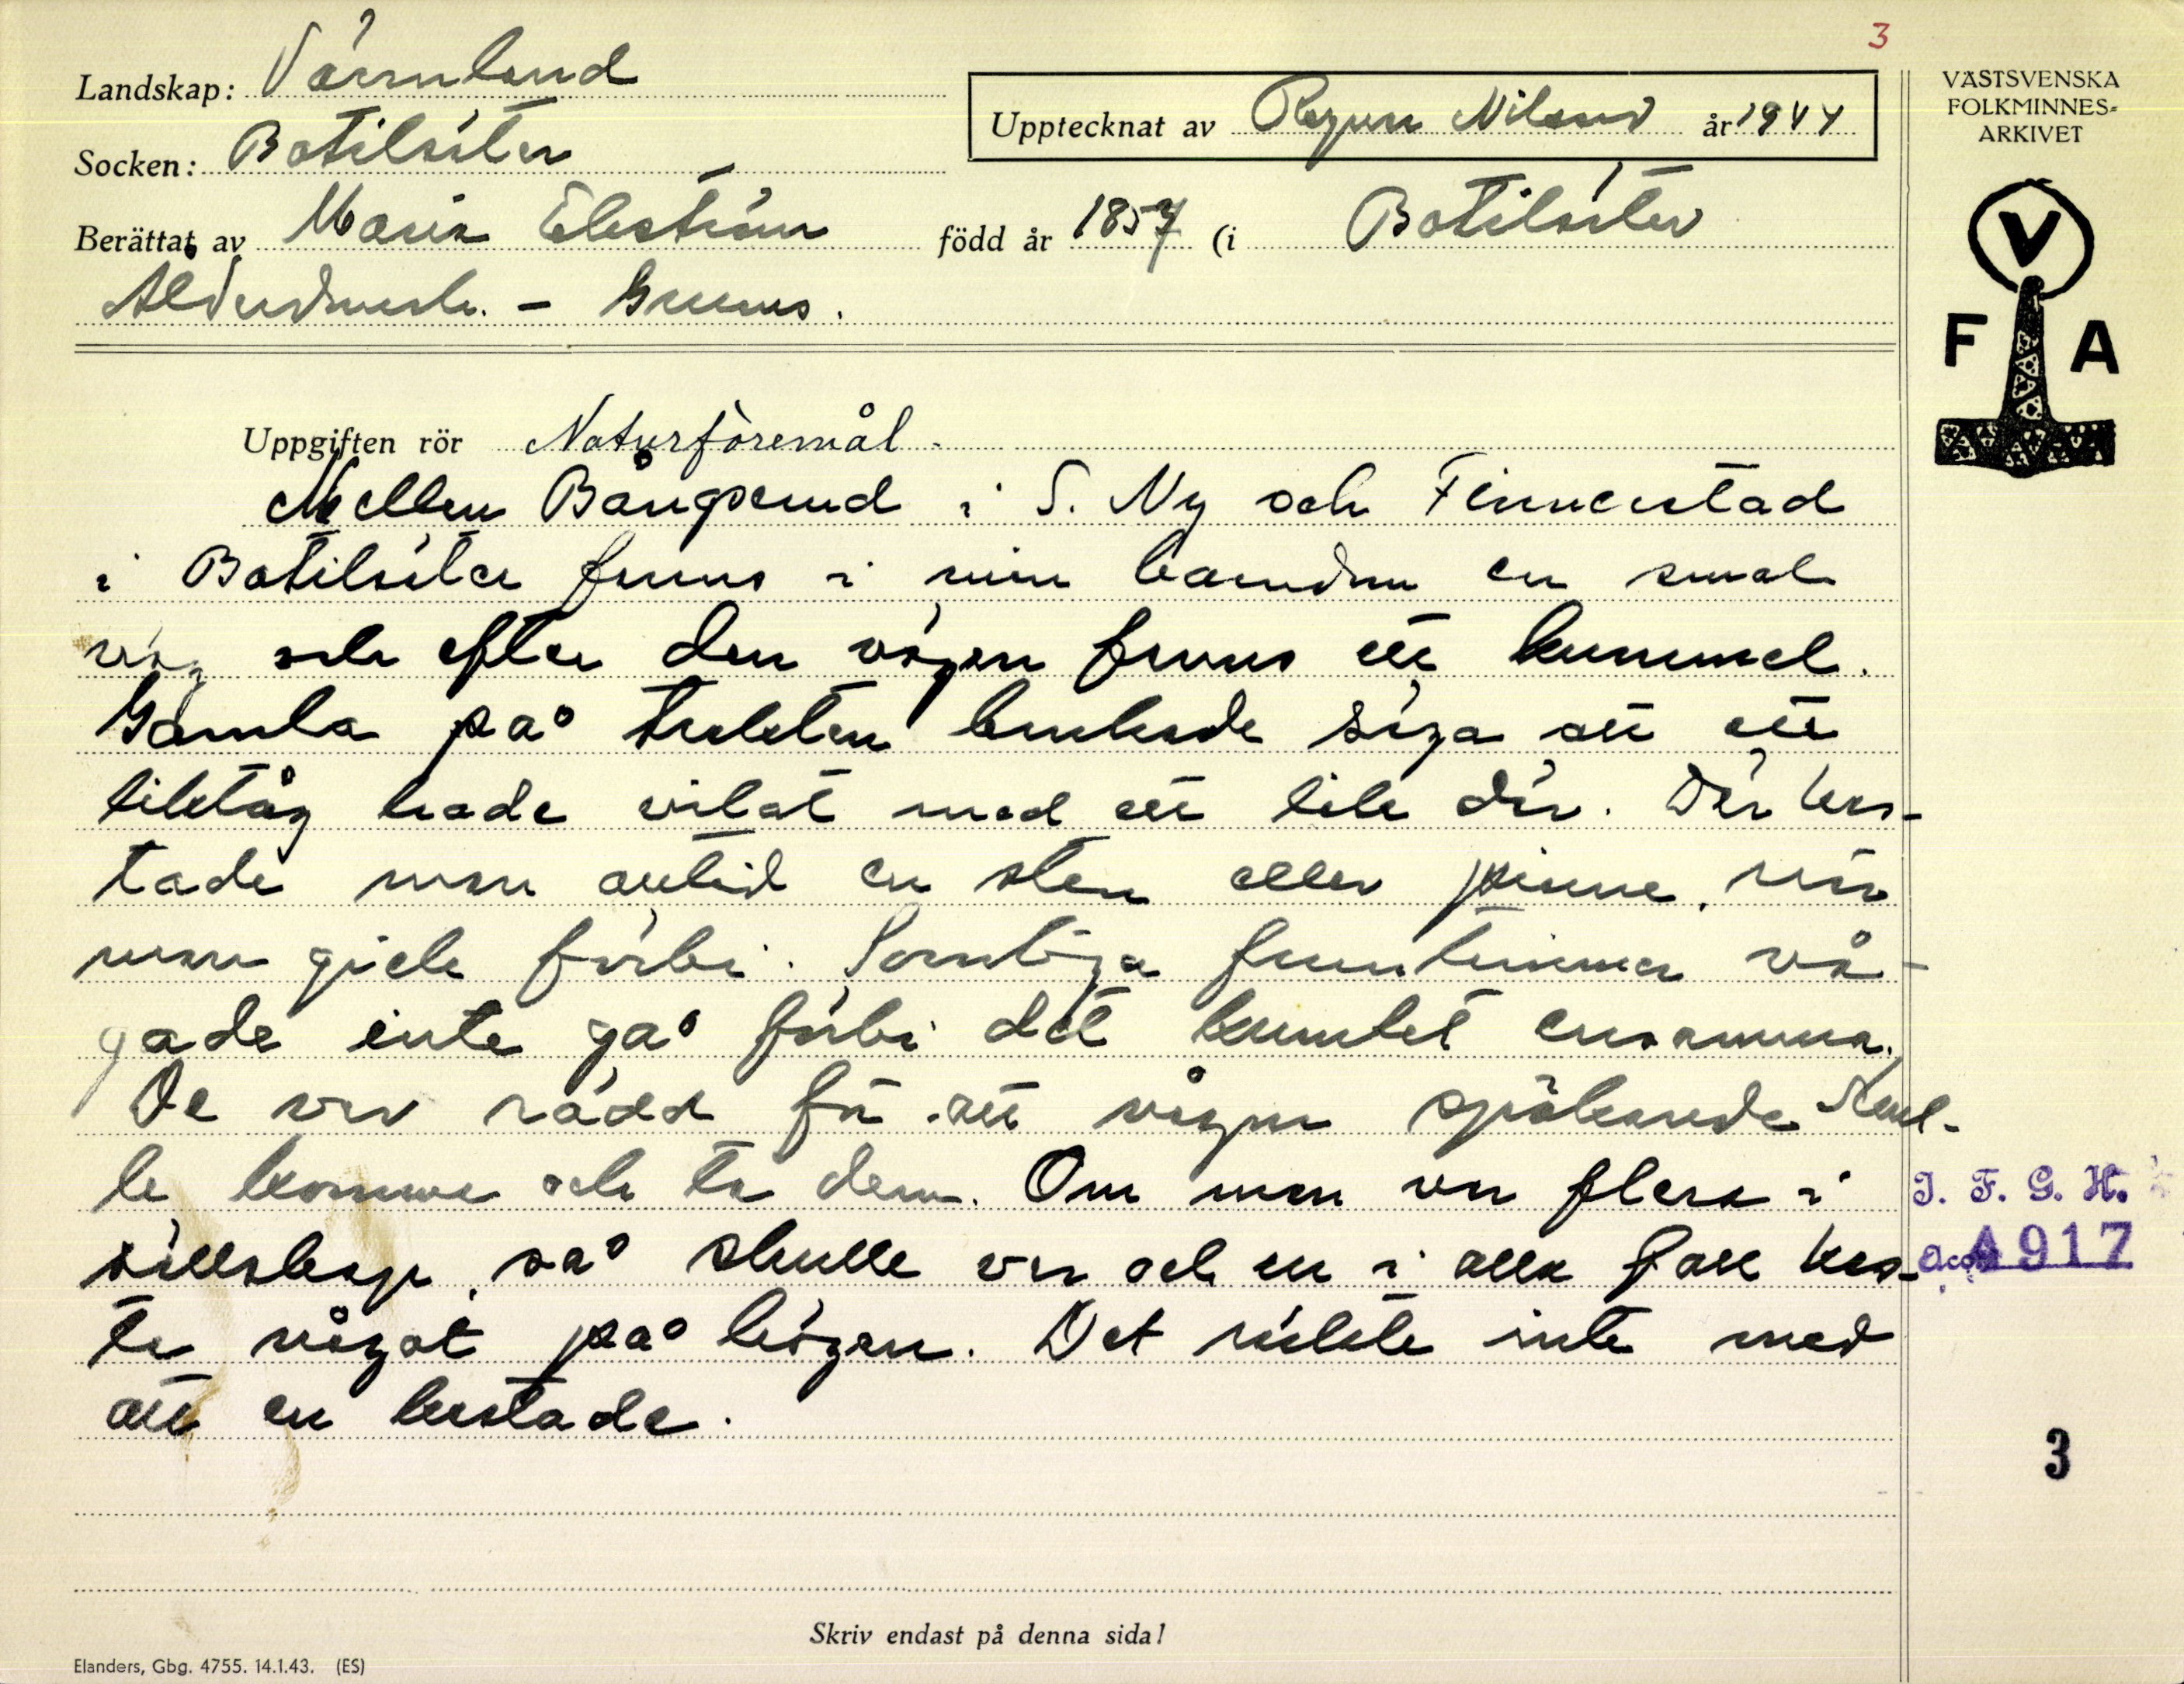 3
Landskap: Värmland
Socken: Botilsäter
Upptecknat av Ragnar Nilsson år 1944
Berättat av Maria Ekström född år 1857 (i Botilsäter
Ålderdomsh. - Grums.
VÄSTSVENSKA
FOLKMINNES-
ARKIVET
V
F A
Uppgiften rör Naturföremål.
Mellan Bångsrud i S. Ny och Finnerstad
i Botilsäter fanns i min barndom en smal
väg och efter den vägen fanns ett kummel.
Gamla på trakten brukade säga att ett
liktåg hade vilat med ett lik där. Där kas-
tade man alltid en sten eller pinne, när
man gick förbi. Somliga fruntimmer vå-
gade inte gå förbi det kumlet ensamma.
De var rädda för att någon spökande skul-
le komma och ta dem. Om man var flera i
sällskap, så skulle var och en i alla fall kas-
ta något på högen. Det räckte inte med
att en kastade.
I. F. G. H.
Acc. 4917
3
Skriv endast på denna sida!
Elanders, Gbg. 4755. 14.1.43. (ES)